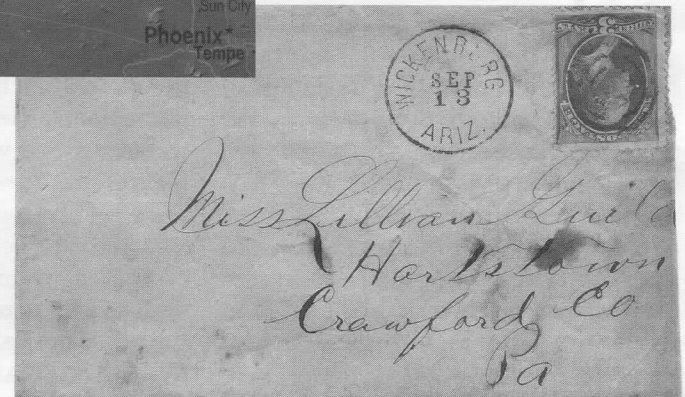 Sun City
Phoenix
Tempe
WICKENBURG
SEP
13
ARIZ.
3
Miss Lillian
Hartstown
Crawford Co
Pa